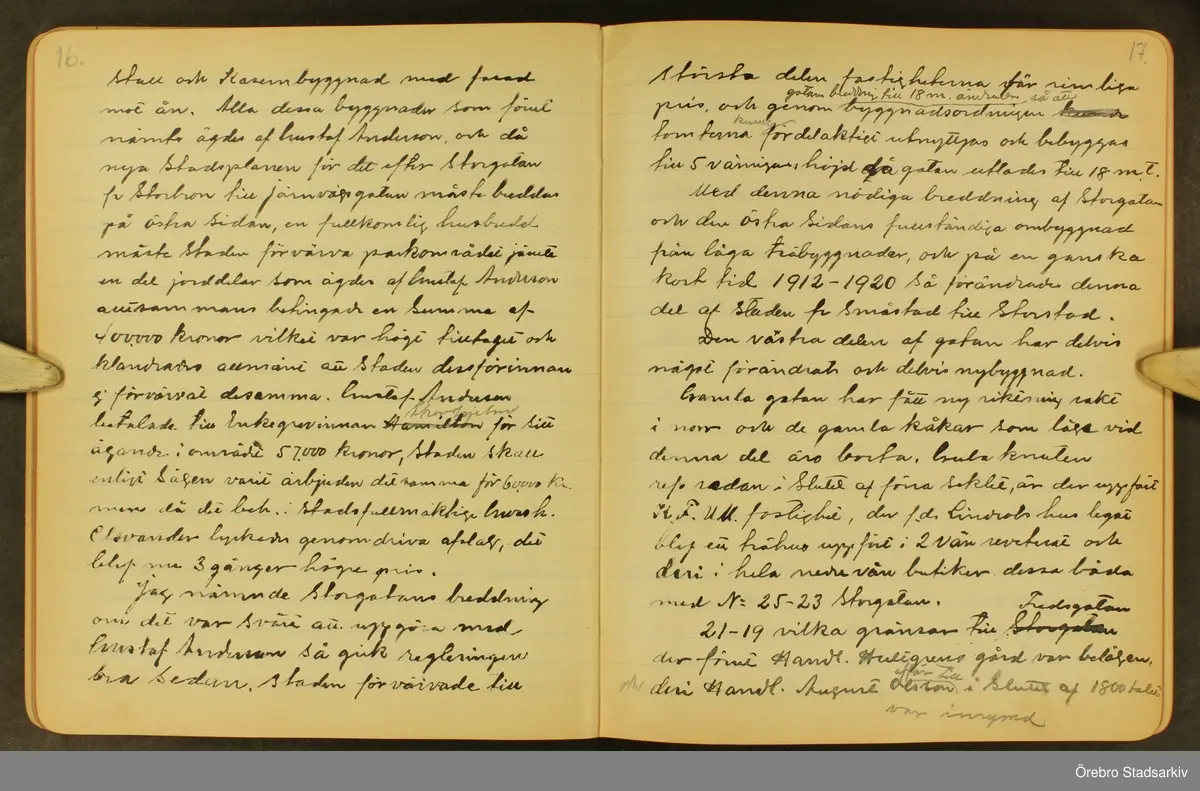 16.
Stall och Kasernbyggnad med fasad
mot ån. Alla dessa byggnader som förut
nämts ägdes af Gustaf Anderson, och då
nya Stadsplanen för det efter Storgatan
fr Storbron till Järnvägsgatan måste breddas
på östra Sidan, en fullkomlig husbredd
måste Staden förvärva parkområdet jämte
en del jorddelar som ägdes af Gustaf Anderson
allsammans betingade en Summa af
400,000 kronor vilket var högt tilltaget och
klandrades allmänt att Staden dessförinnan
ej förvärvat desamma. Gustaf Anderson
betalade till Enkegrevinnan Hamilton för sitt
ägande i området 57,000 kronor, Staden skall
enligt Sägen varit ärbjuden detsamma för 60,000 kr.
men då det bek. i Stadsfullmäktige Gwsh.
Elovander lyckades genomdriva afslag, det
blef nu 3 gånger högre pris.
Jag nämnde Storgatans breddning
om det var Svårt att uppgöra med
Gustaf Anderson så gick regleringen
bra Sedan. Staden förvärvade till
17.
Största delen fastigheterna för rimliga
gatans breddning till 18 m. ändrades så att
pris, och genom byggnadsordningen
kunde
tomterna fördelaktigt utnyttjas och bebyggas
till 5 våningars höjd då gatan utlades till 18 m.
Med denna nödiga breddning af Storgatan
och den östra Sidans fullständiga ombyggnad
från låga träbyggnader, och på en ganska
kort tid 1912-1920 Så förändrades denna
del af Staden fr Småstad till Storstad.
Den västra delen af gatan har delvis
något förändrats och delvis nybyggnad.
Gamla gatan har fått ny riktning rakt
i norr och de gamla kåkar som låge vid
denna del äro borta. Gula knuten
refs redan i Slutet af förra seklet, är der uppfört
K.F.U.M. fastighet, der f.d. Lindrots hus legat
blef ett trähus uppfört i 2 vån reveterat och
deri i hela nedre vån butiker dessa båda
med N: 25-23 Storgatan.
Fredsgatan
21-19 vilka gränsar till Storgatan
der förut Handl. Hultgrens gård var belägen,
affär
och deri Handl. August Olsson i Slutet af 1800 talet
var inrymd
Örebro Stadsarkiv